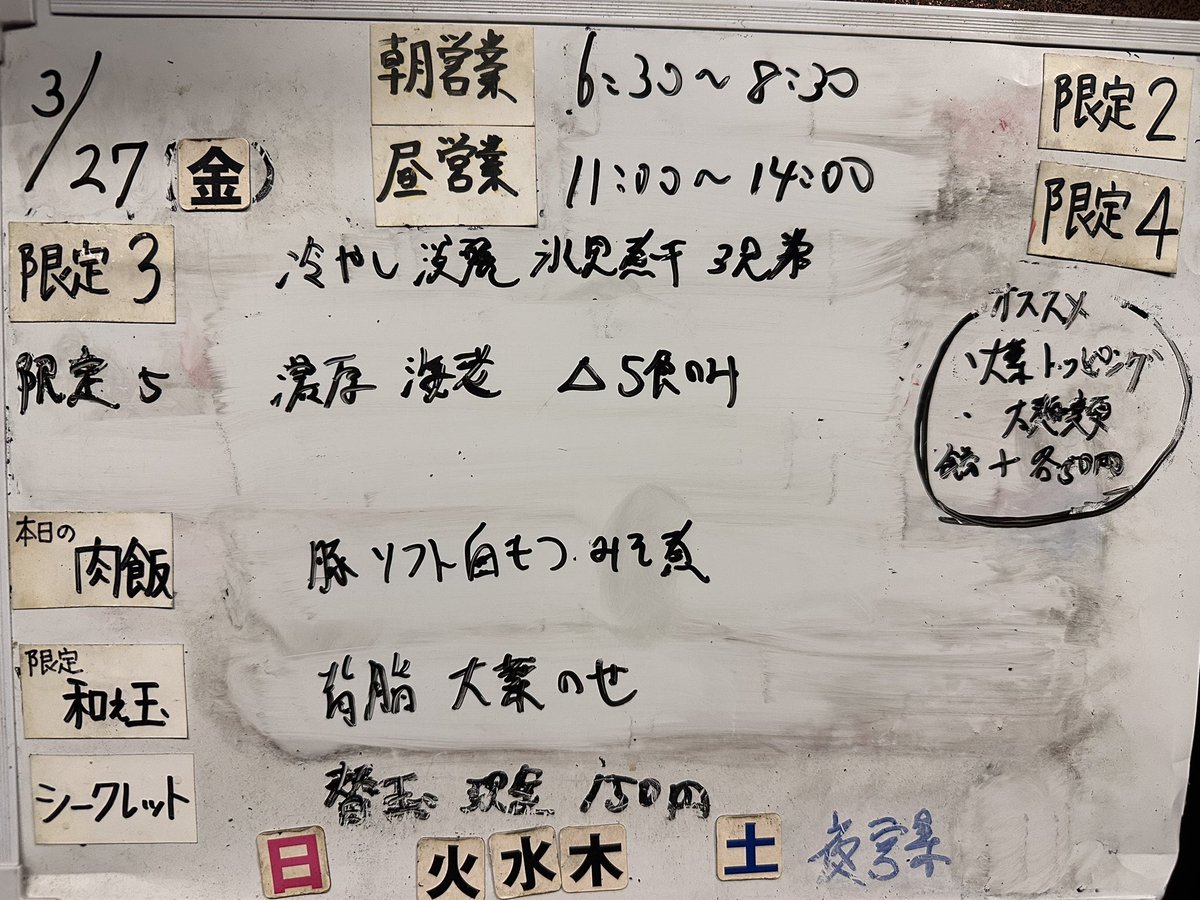 3/27 金
朝営業 6:30〜8:30
昼営業 11:00〜14:00
限定2
限定4
限定3 冷やし 淡麗 氷見煮干
限定5 濃厚 海老 △5食のみ
オススメ
・大葉トッピング
・大葉麺
各50円
本日の肉飯 豚ソフト白もつ みそ煮
限定和え玉 背脂 大葉のせ
シークレット 替玉 現金 150円
日 火 水 木 土 夜営業